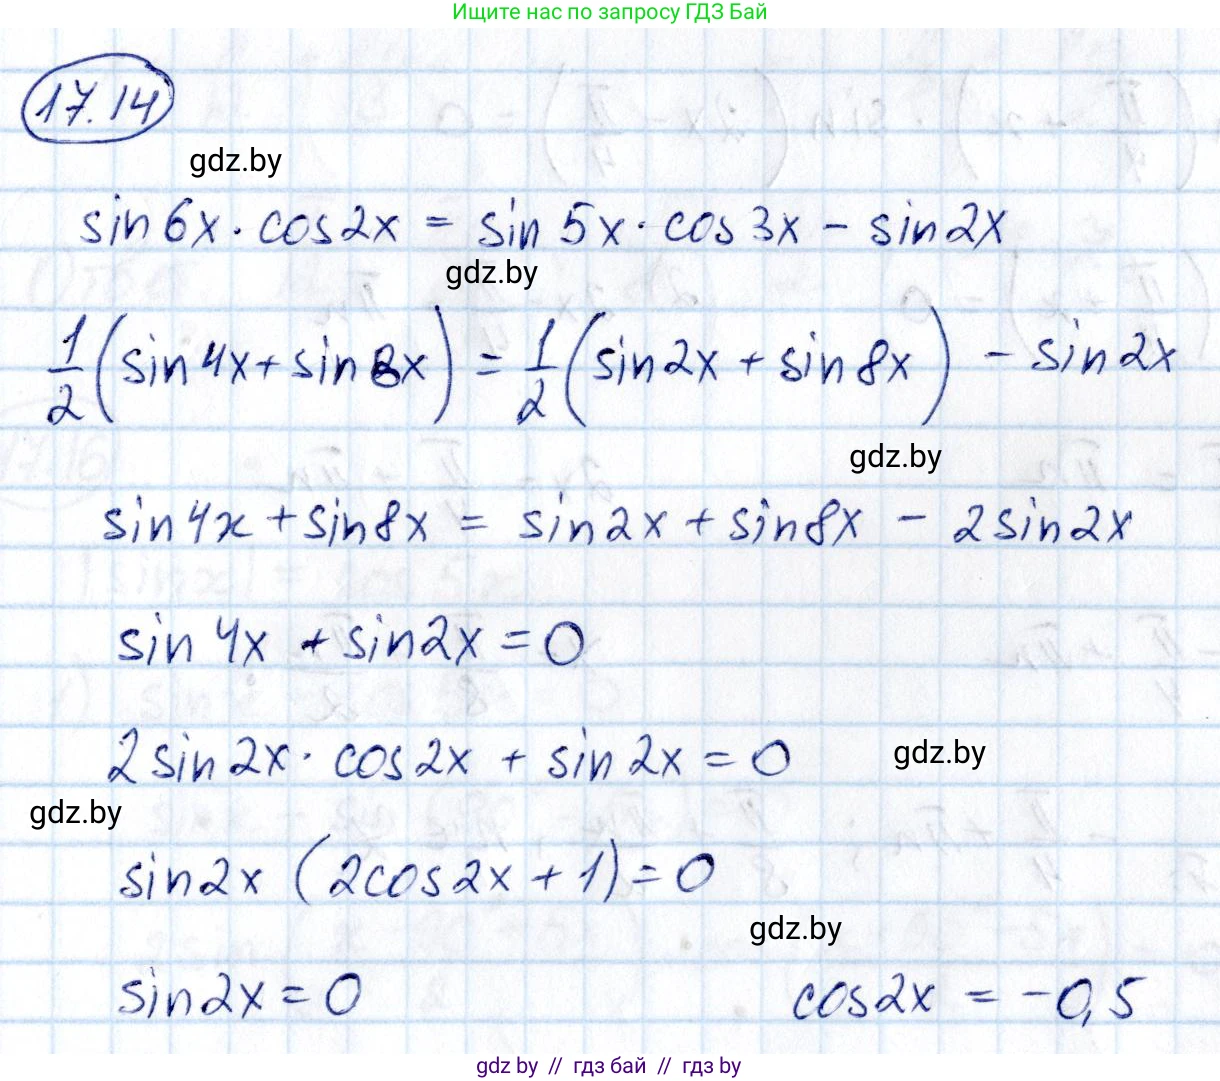 Ищите нас по запросу ГДЗ Бай
17.14
gdz.by
sin6x · cos2x = sin5x · cos3x - sin2x
gdz.by
1/2 (sin4x + sin8x) = 1/2 (sin2x + sin8x) - sin2x
gdz.by
sin4x + sin8x = sin2x + sin8x - 2sin2x
sin4x + sin2x = 0
2sin2x · cos2x + sin2x = 0
gdz.by
gdz.by
sin2x (2cos2x + 1) = 0
gdz.by
sin2x = 0 cos2x = -0,5
gdz.by // гдз бай // гдз by